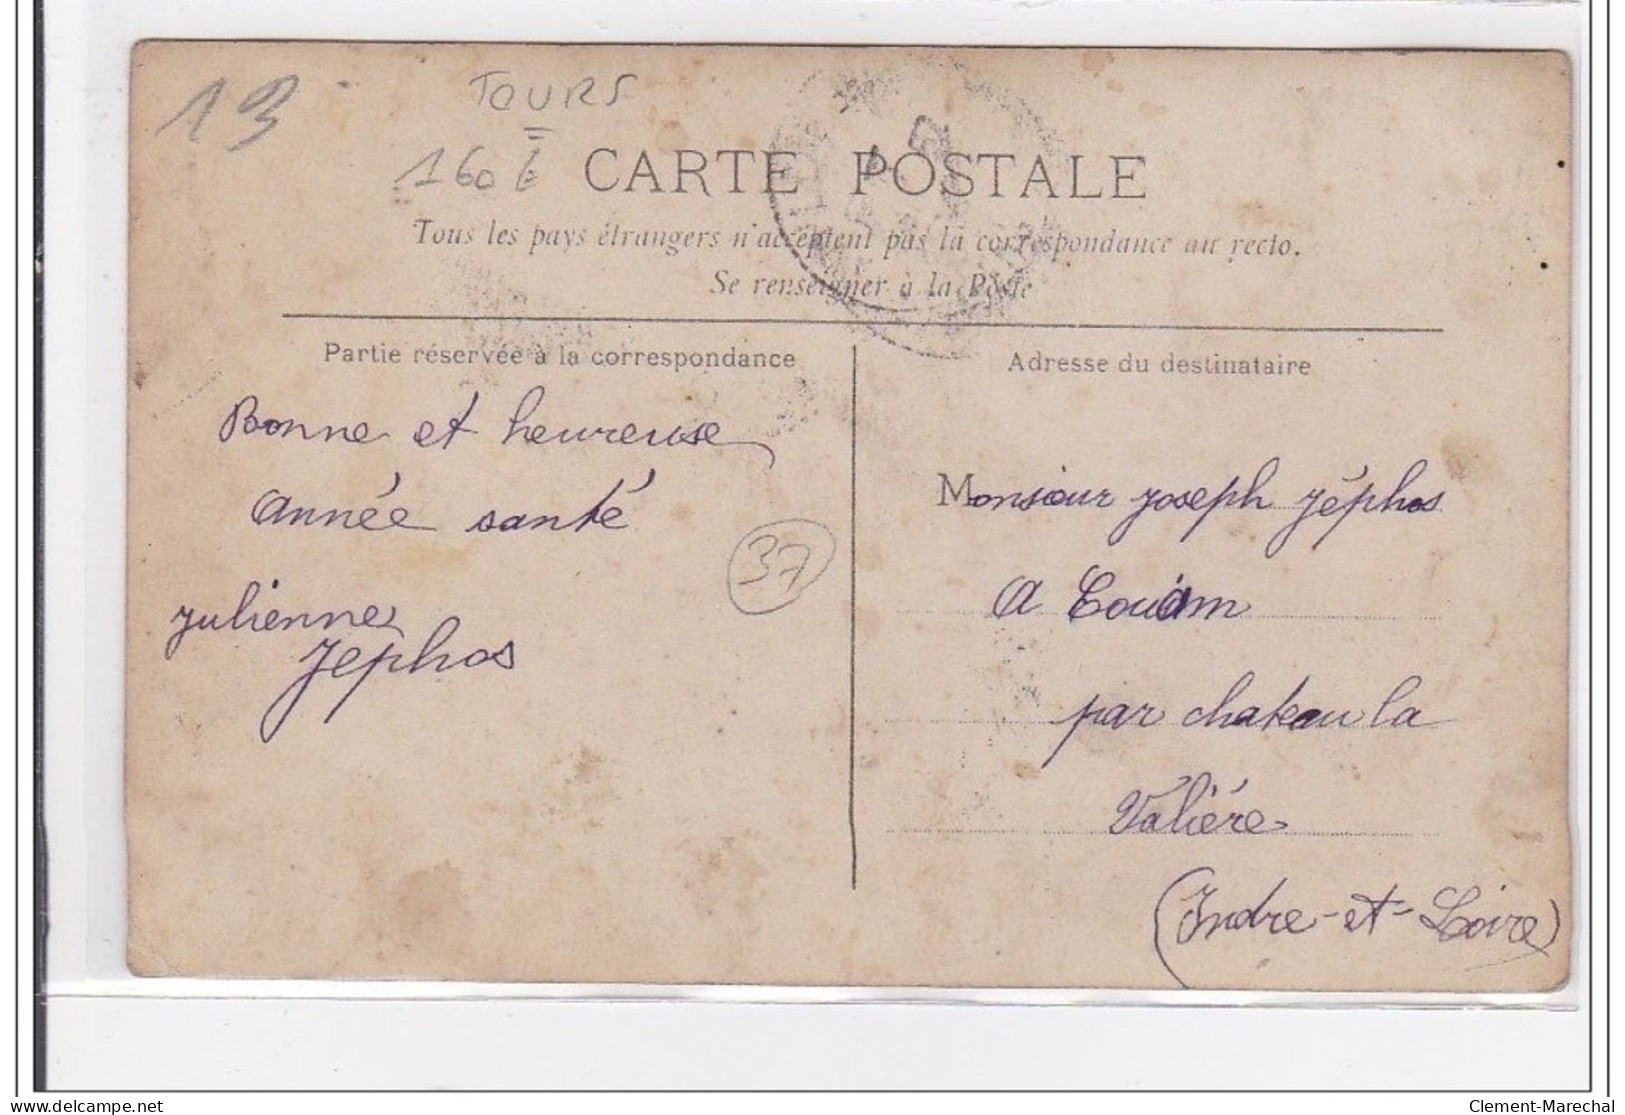 13
TOURS
160 €
CARTE POSTALE
Tous les pays étrangers n'acceptent pas la correspondance au recto.
Se renseigner à la Poste
Partie réservée à la correspondance
Adresse du destinataire
Bonne et heureuse
année santé
Julienne
Jephos
37
Monsieur Joseph Jéphos
A
par chateau la
Valiére
(Indre-et-Loire)
Clement-Marechal